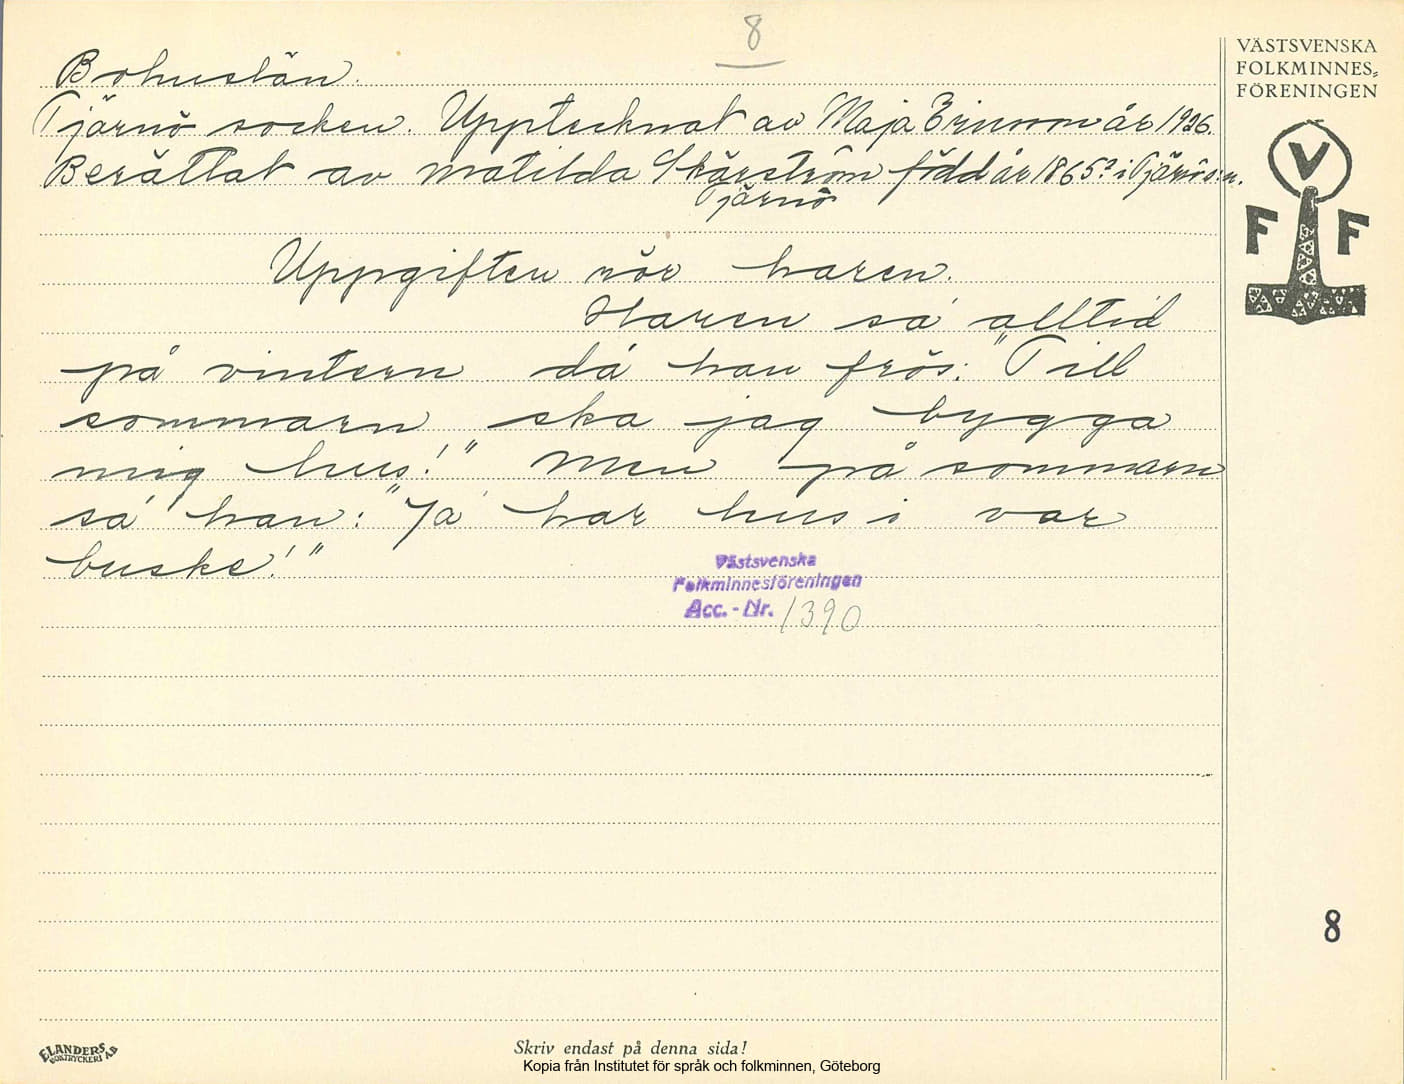 8
VÄSTSVENSKA
FOLKMINNES-
FÖRENINGEN
V
F F
Bohuslän.
Tjärnö socken. Upptecknat av Maja Ericsson år 1926.
Berättat av Matilda Skärström född år 1865? i Tjärnö s:n.
Tjärnö
Uppgiften rör haren.
Haren sá alltid
på vintern dá han frös: "Till
sommarn ska jag bygga
mig hus!" Men på sommarn
sá han: "Já har hus i var
buske!"
Västsvenska
Folkminnesföreningen
Acc.-Nr. 1390
8
ELANDERS BOKTRYCKERI AB
Skriv endast på denna sida!
Kopia från Institutet för språk och folkminnen, Göteborg